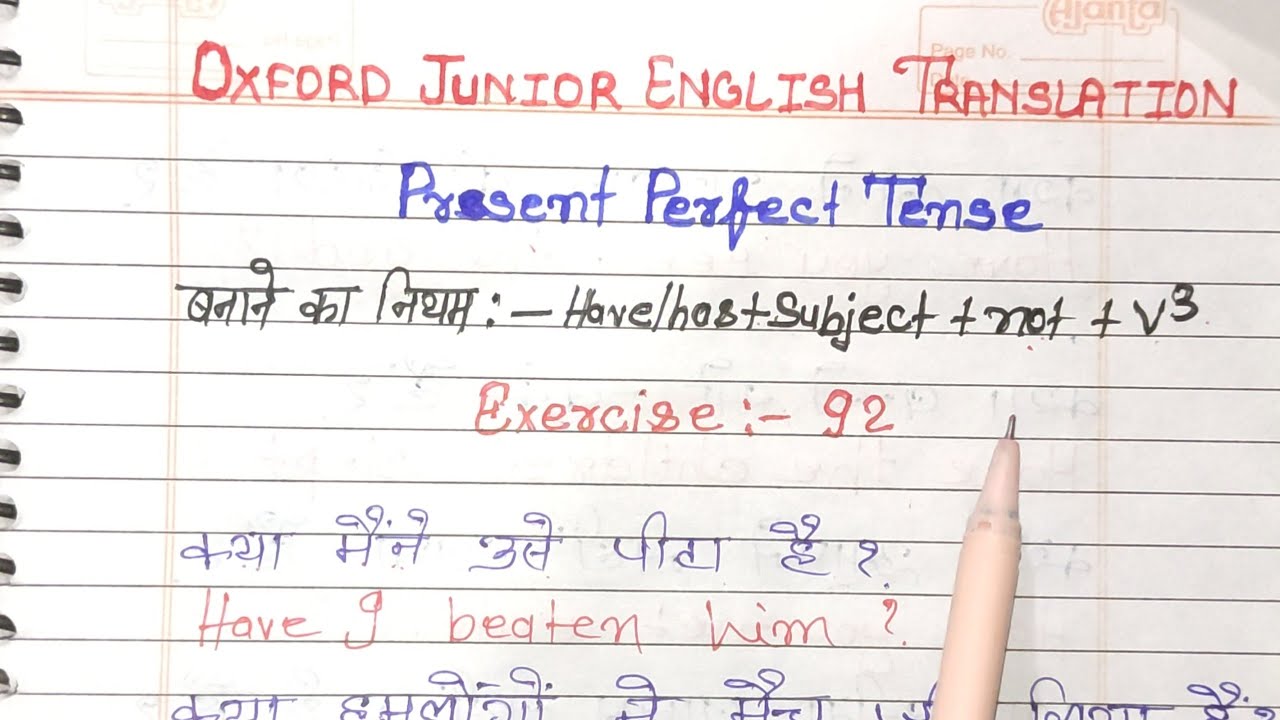 Ajanta
Page No.
OXFORD JUNIOR ENGLISH TRANSLATION
Present Perfect Tense
बनाने का नियम :- Have/has+Subject + not + V3
Exercise :- 92
क्या मैंने उसे पीटा है ?
Have I beaten him ?
क्या हमलोगों ने मैच